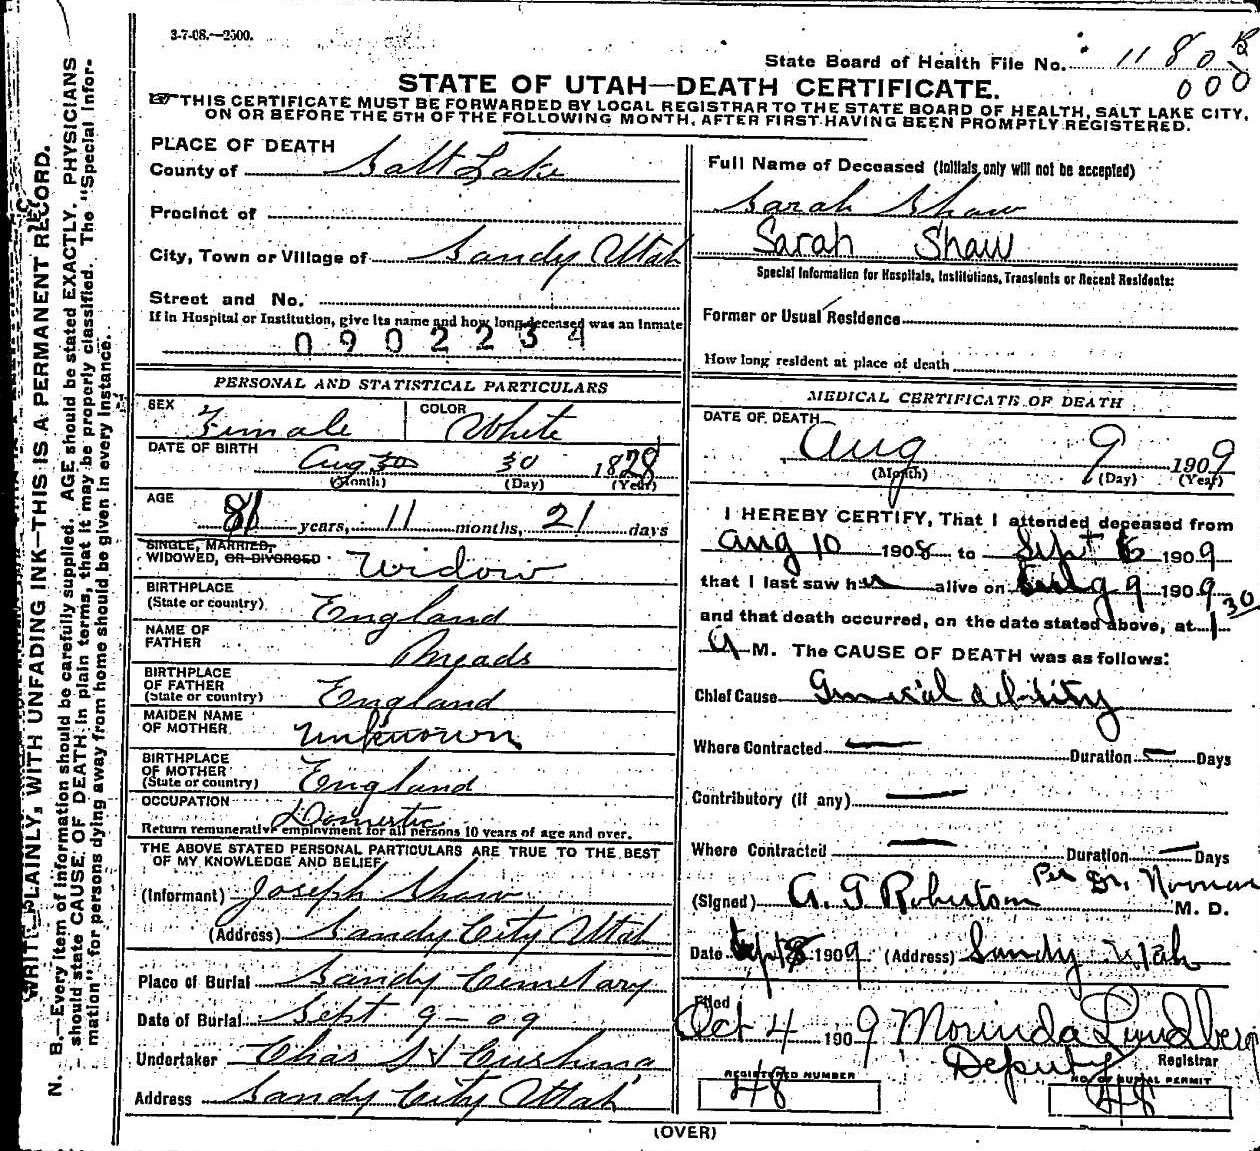 3-7-08.—2500.
State Board of Health File No. 1180
000
STATE OF UTAH—DEATH CERTIFICATE.
THIS CERTIFICATE MUST BE FORWARDED BY LOCAL REGISTRAR TO THE STATE BOARD OF HEALTH, SALT LAKE CITY,
ON OR BEFORE THE 5TH OF THE FOLLOWING MONTH, AFTER FIRST HAVING BEEN PROMPTLY REGISTERED.
WRITE PLAINLY, WITH UNFADING INK—THIS IS A PERMANENT RECORD.
N. B.—Every item of information should be carefully supplied. AGE should be stated EXACTLY. PHYSICIANS
should state CAUSE OF DEATH in plain terms, that it may be properly classified. The "Special Infor-
mation" for persons dying away from home should be given in every instance.
PLACE OF DEATH
County of Salt Lake
Precinct of
City, Town or Village of Sandy Utah
Street and No.
If in Hospital or Institution, give its name and how long deceased was an Inmate
0902234
PERSONAL AND STATISTICAL PARTICULARS
SEX Female COLOR White
DATE OF BIRTH Aug 30 30 1828
(Month) (Day) (Year)
AGE 81 years, 11 months, 21 days
SINGLE, MARRIED,
WIDOWED, OR DIVORCED Widow
BIRTHPLACE
(State or country) England
NAME OF
FATHER
BIRTHPLACE
OF FATHER
(State or country) England
MAIDEN NAME
OF MOTHER Unknown
BIRTHPLACE
OF MOTHER
(State or country) England
OCCUPATION Domestic
Return remunerative employment for all persons 10 years of age and over.
THE ABOVE STATED PERSONAL PARTICULARS ARE TRUE TO THE BEST
OF MY KNOWLEDGE AND BELIEF
(Informant) Joseph Shaw
(Address) Sandy City Utah
Place of Burial Sandy Cemetary
Date of Burial Sept 9-09
Undertaker Chas
Address Sandy City Utah
Full Name of Deceased (Initials only will not be accepted)
Sarah Shaw
Sarah Shaw
Special Information for Hospitals, Institutions, Transients or Recent Residents:
Former or Usual Residence
How long resident at place of death
MEDICAL CERTIFICATE OF DEATH
DATE OF DEATH
Aug 9 1909
(Month) (Day) (Year)
I HEREBY CERTIFY, That I attended deceased from
Aug 10 1908 to Sept 6 1909
that I last saw her alive on Aug 9 1909
and that death occurred, on the date stated above, at 1 30
A M. The CAUSE OF DEATH was as follows:
Chief Cause General debility
Where Contracted — Duration 5 Days
Contributory (if any) —
Where Contracted — Duration — Days
(Signed) A. G Robertson Per Dr. Noonan M. D.
Date Sept 8 1909 (Address) Sandy Utah
Filed
Oct 4 1909 Morinda Lundberg
Deputy Registrar
REGISTERED NUMBER
48
NO. OF BURIAL PERMIT
48
(OVER)